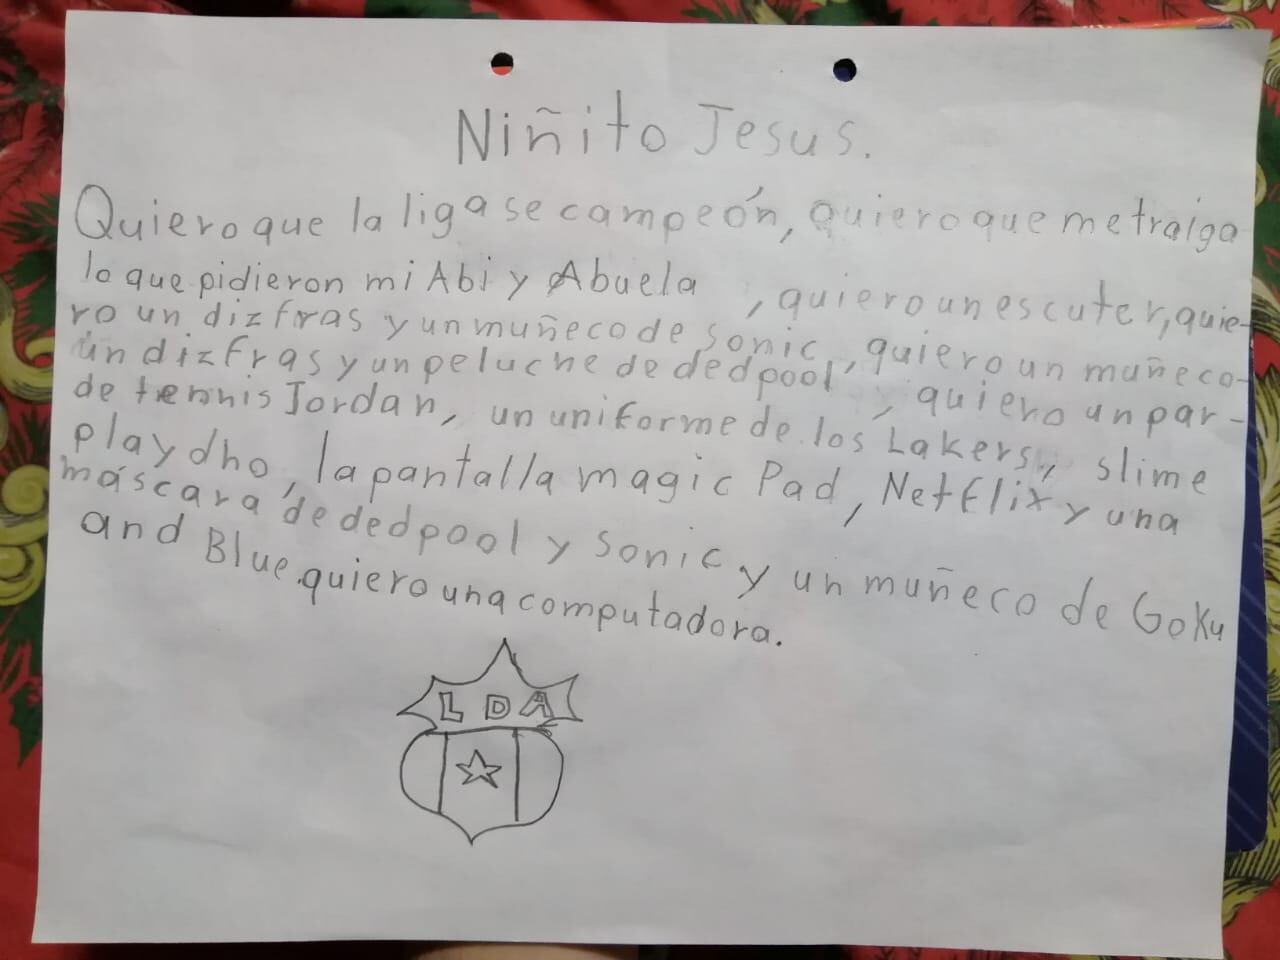 Niñito Jesus.
Quiero que la liga se campeón, quiero que me traiga
lo que pidieron mi Abi y Abuela , quiero un escuter, quie-
ro un dizfras y un muñeco de sonic, quiero un muñeco-
un dizfras y un peluche de dedpool, quiero un par-
de tennis Jordan, un uniforme de los Lakers, slime
playdho, la pantalla magic Pad, Netflix y una
máscara de dedpool y sonic y un muñeco de Goku
and Blue. quiero una computadora.
LDA